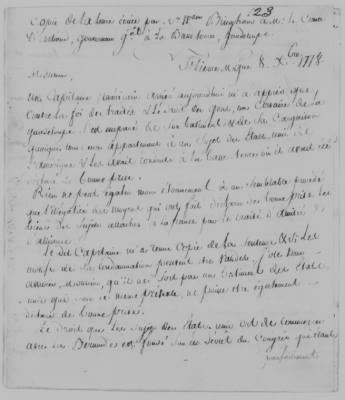 23
Copie de la lettre écrite par Mr. Wam Bingham à Mr. le Comte
D'arbaud, gouverneur gnal à La Basseterre, Guadeloupe.
St. Pierre Mque 8. Xbre 1778.
Monsieur
Un Capitaine américain arrivé aujourd'hui m'a appris que
Contre la foi des traités & le droit des gens, un Corsaire de la
guadeloupe s'est emparé de son batiment & de sa Cargaison
quoique tous deux appartenant à un sujet des Etats unis de
l'amérique & les avait conduits à la basseterre où il avait été
déclaré de bonne prise.
Rien ne peut égaler mon étonnement à un semblable procédé
que l'illégalité des moyens qui ont fait déclarer de bonne prise les
biens des sujets attachés à la france par le traité d'amitié &
d'alliance.
Le dit Capitaine m'a remis Copie de la Sentence & si les
motifs de la Condamnation peuvent être valides, j'ose vous
assurer Monsieur, qu'il ne sort pas un batiment des Etats
unis que sous le meme prétexte ne puisse être également
déclaré de bonne prise.
Le droit que les sujets des Etats unis ont de commercer
avec les Bermudes est fondé sur un décret du Congrès qui étant
parfaitement